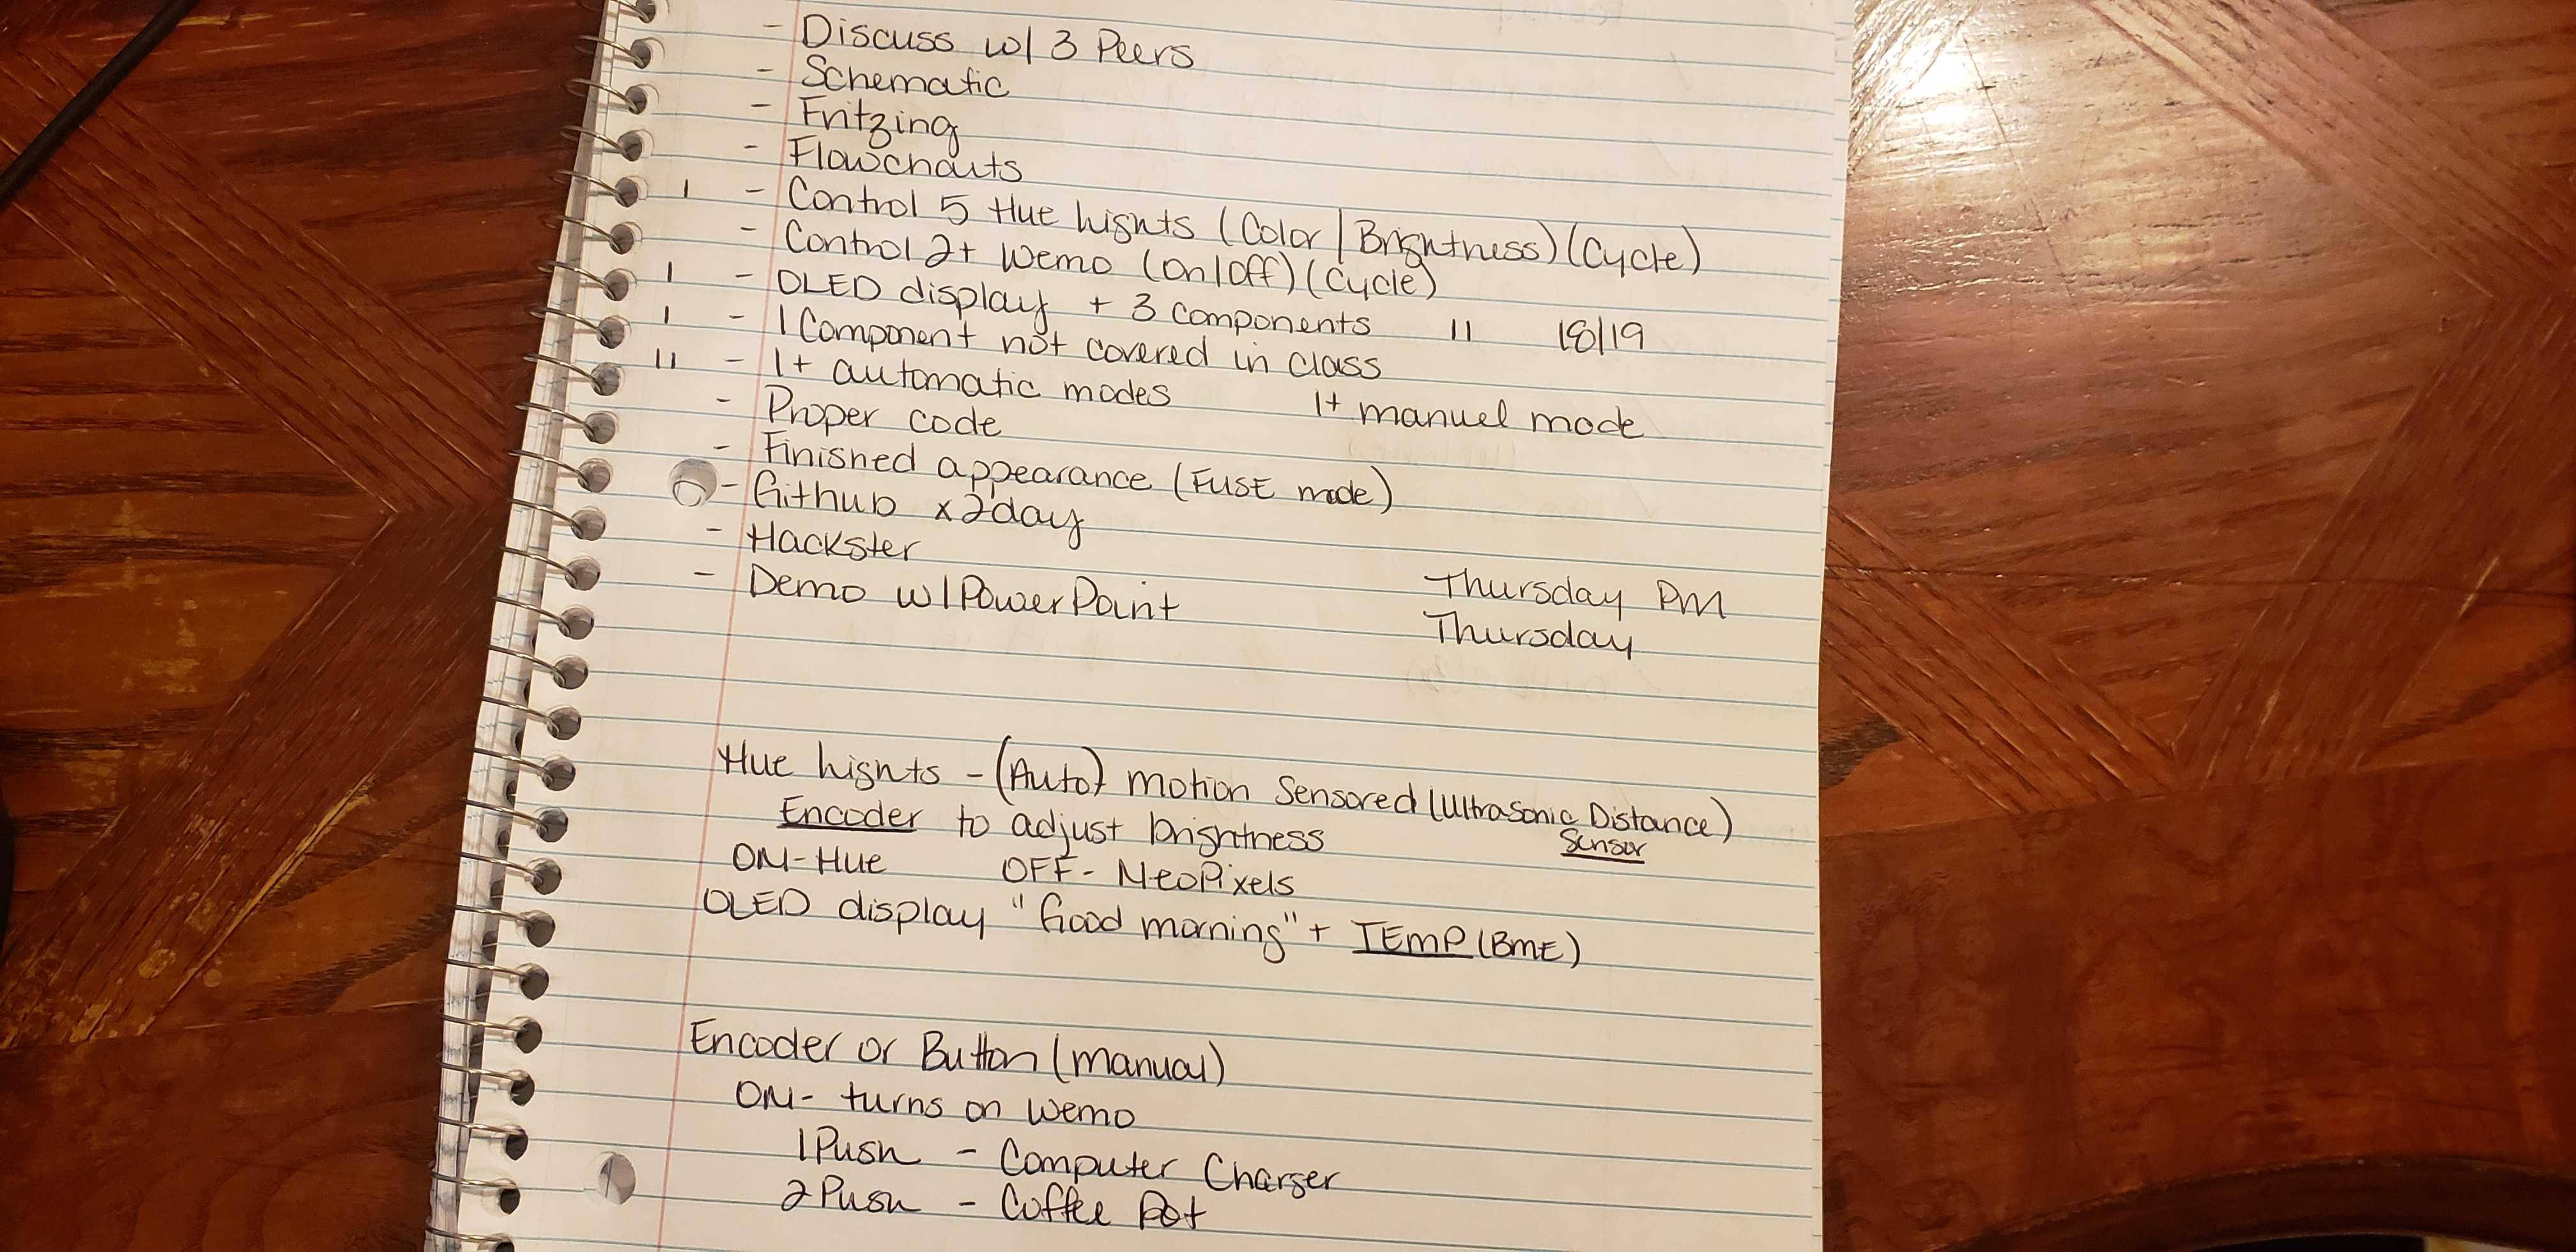 - Discuss w/ 3 Peers
- Schematic
- Fritzing
- Flowcharts
I - Control 5 Hue Lights (Color | Brightness) (Cycle)
- Control 2+ Wemo (On/Off) (Cycle)
I - OLED display + 3 components II 18/19
I - 1 Component not covered in class
II - 1+ automatic modes 1+ manuel mode
- Proper code
- Finished appearance (FUSE mode)
- Github x2day
- Hackster Thursday PM
- Demo w/ PowerPoint Thursday
Hue Lights - (Auto) Motion Sensored (Ultrasonic Distance)
Sensor
Encoder to adjust brightness
ON - Hue OFF - NeoPixels
OLED display "Good morning" + TEMP (BME)
Encoder or Button (manual)
ON - turns on Wemo
1 Push - Computer Charger
2 Push - Coffee Pot